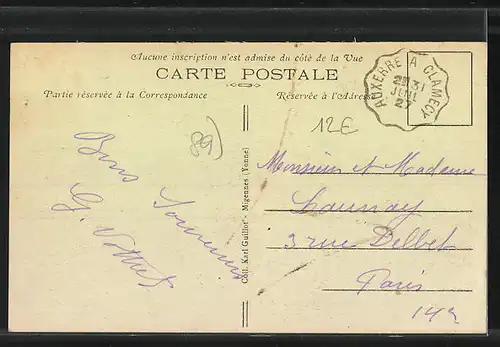 Aucune inscription n'est admise du côté de la Vue
CARTE POSTALE
Partie réservée à la Correspondance
Réservée à l'Adresse
AUXERRE A CLAMECY
31
JUIL
27
12€
89
Bons Souvenirs
G.
Coll. Karl Guillot - Migennes (Yonne)
Monsieur et Madame
Launay
3 rue Delbet
Paris
14e